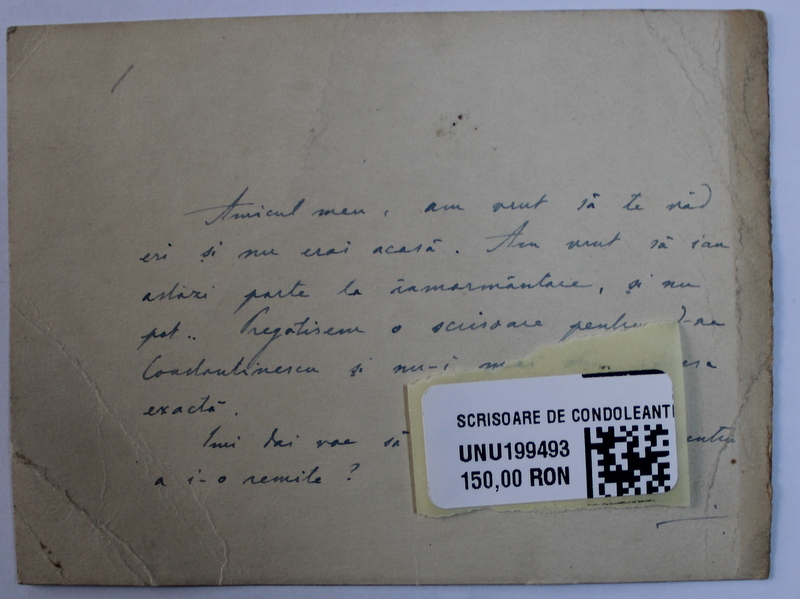 Amicul meu, am vrut să te văd
eri și nu erai acasă. Am vrut să iau
astăzi parte la înmormântare, și nu
pot.. Pregatisem o scrisoare pentru D-na
Constantinescu și nu-i
exactă.
Îmi dai voe să
a i-o remite?
SCRISOARE DE CONDOLEANT
UNU199493
150,00 RON